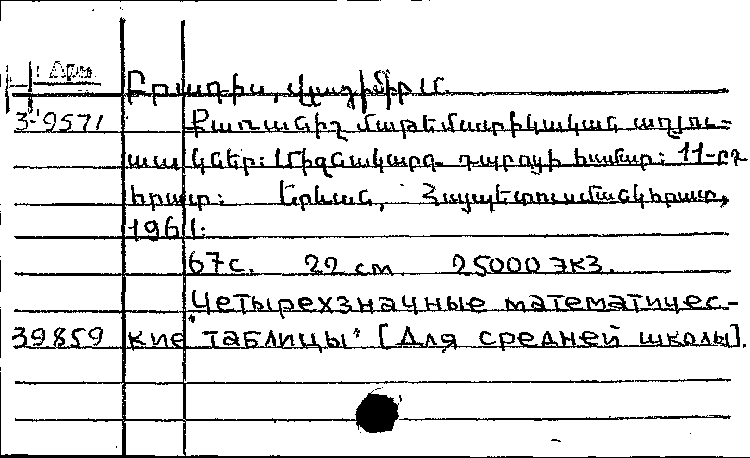 Арм.
Բրադիս, Վլադիմիր Մ.
3-9571 Քառանիշ մաթեմատիկական աղյու-
սակներ: Միջնակարգ դպրոցի համար: 11-րդ
հրատ: Երևան, Հայպետուսմանկհրատ,
1961:
67 с. 22 см 25000 экз.
Четырехзначные математичес-
39859 кие "таблицы" [Для средней школы].